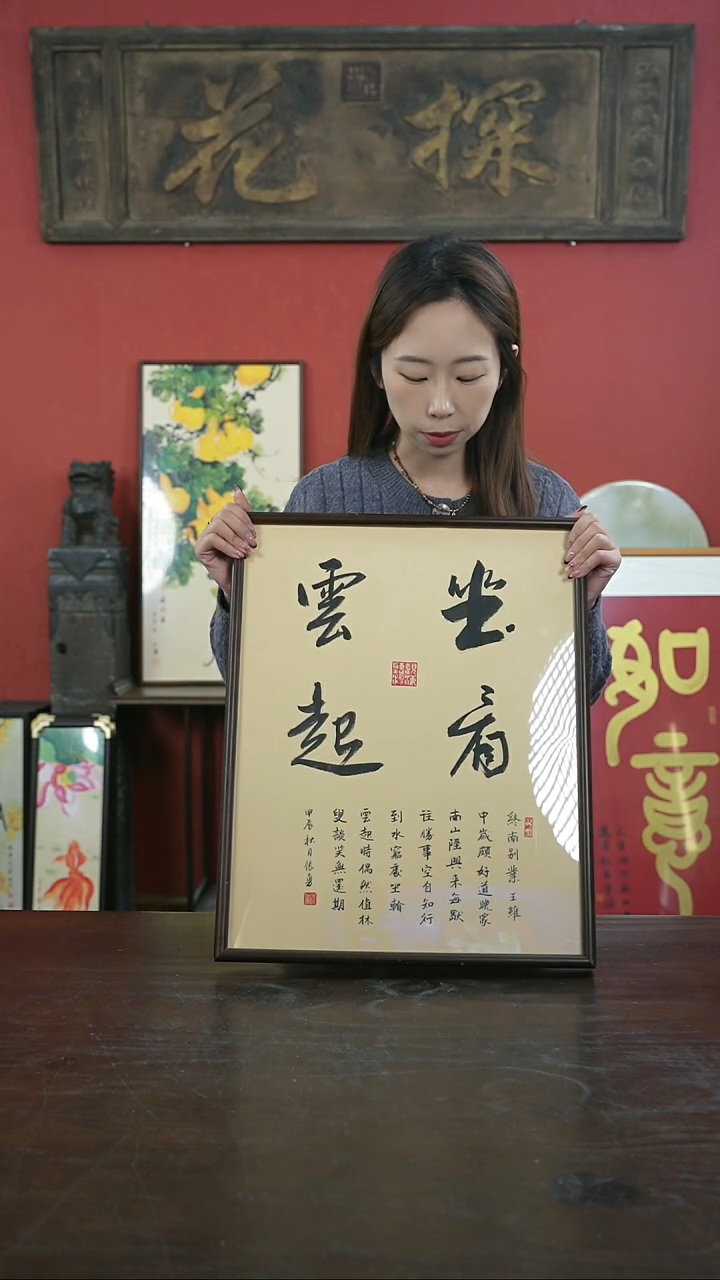 探花
坐看
雲起
終南别業 王維
中歲頗好道晚家
南山陲興来每
往勝事空自知行
到水窮處坐
雲起時偶然值林
叟談笑無還期
甲辰秋月張
如意